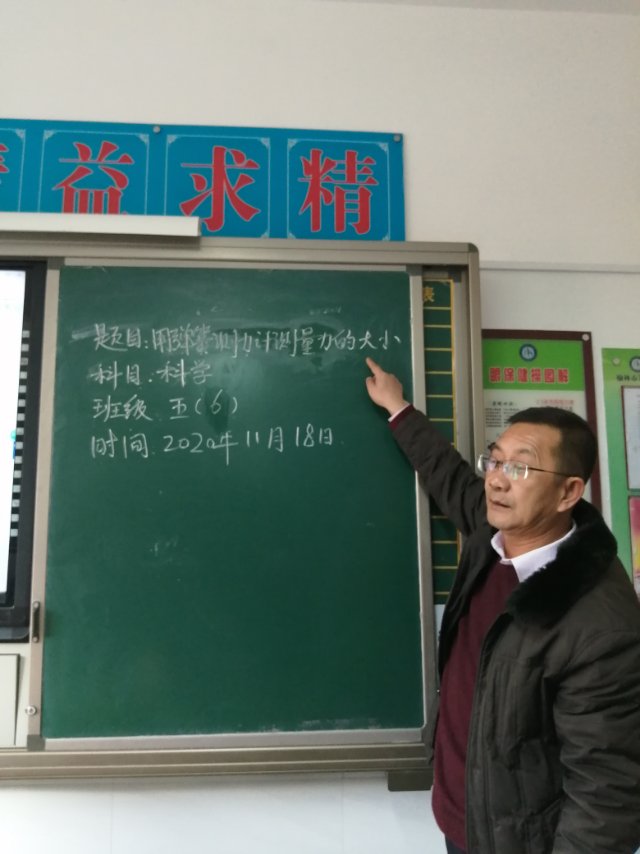 益求精
题目:用弹簧测力计测量力的大小
科目.科学
班级 五(6)
时间.2020年11月18日.
表
眼保健操图解